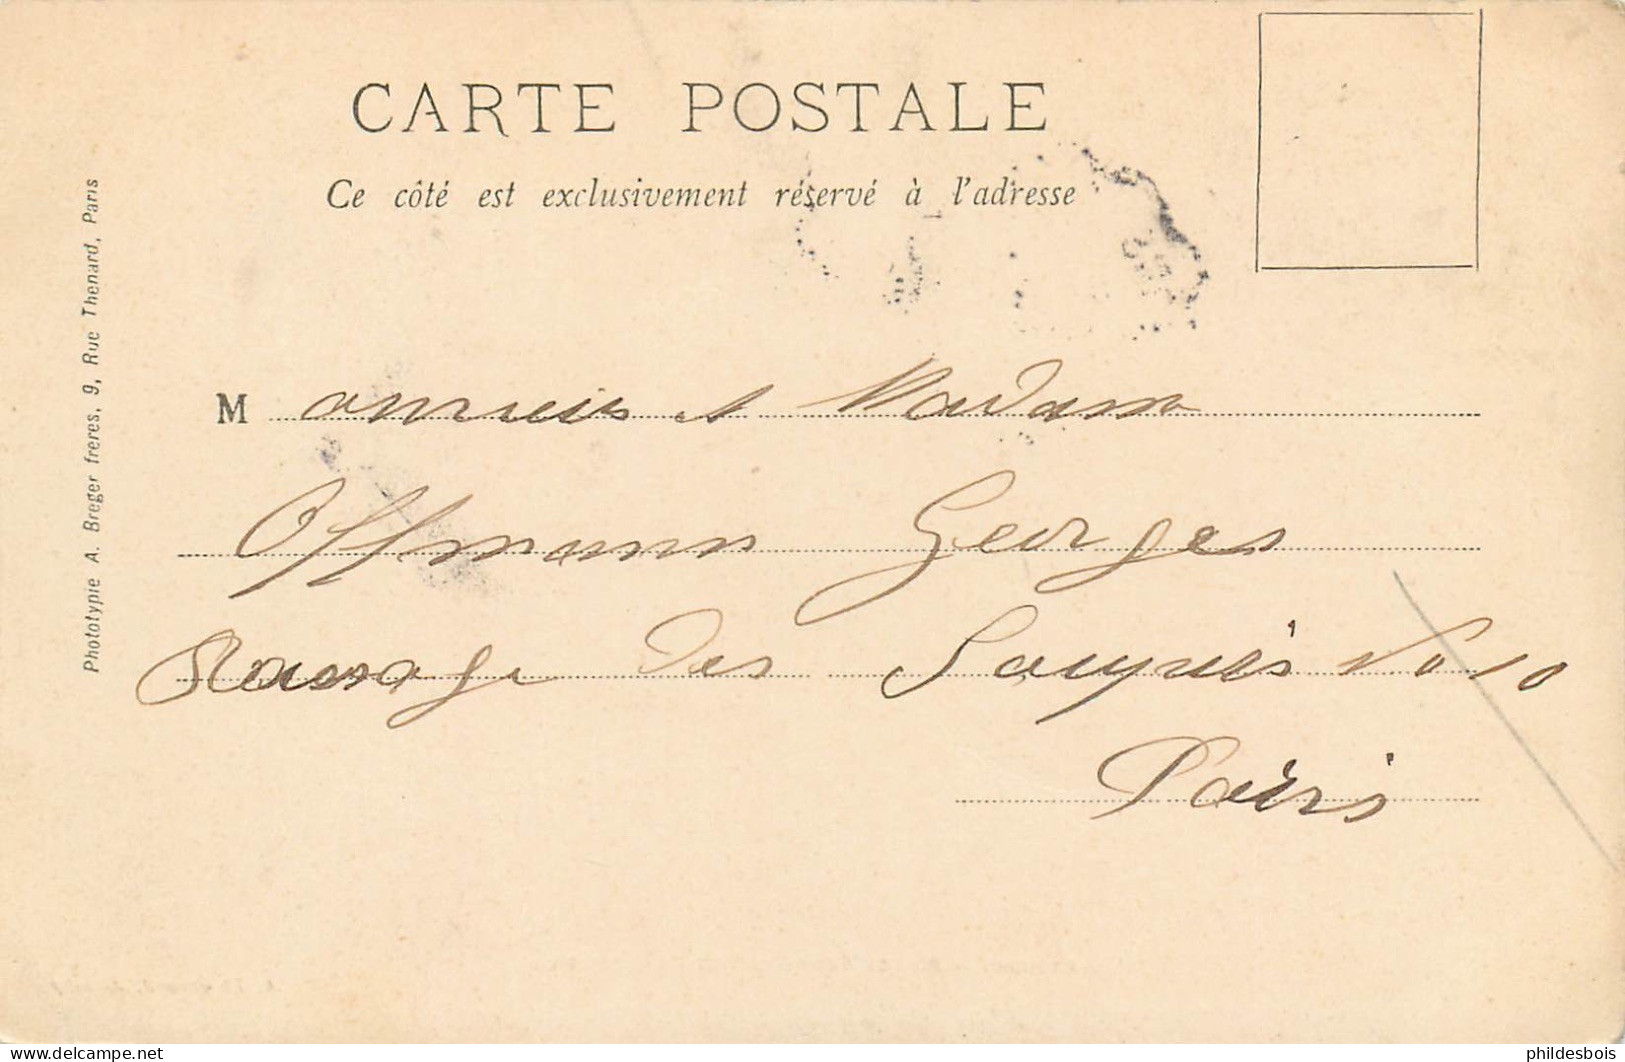 CARTE POSTALE
Ce côté est exclusivement réservé à l'adresse
Phototypie A. Breger frères, 9, Rue Thenard, Paris
Monsieur et Madame
Offmann Georges
Passage des No 10
Paris
phildesbois